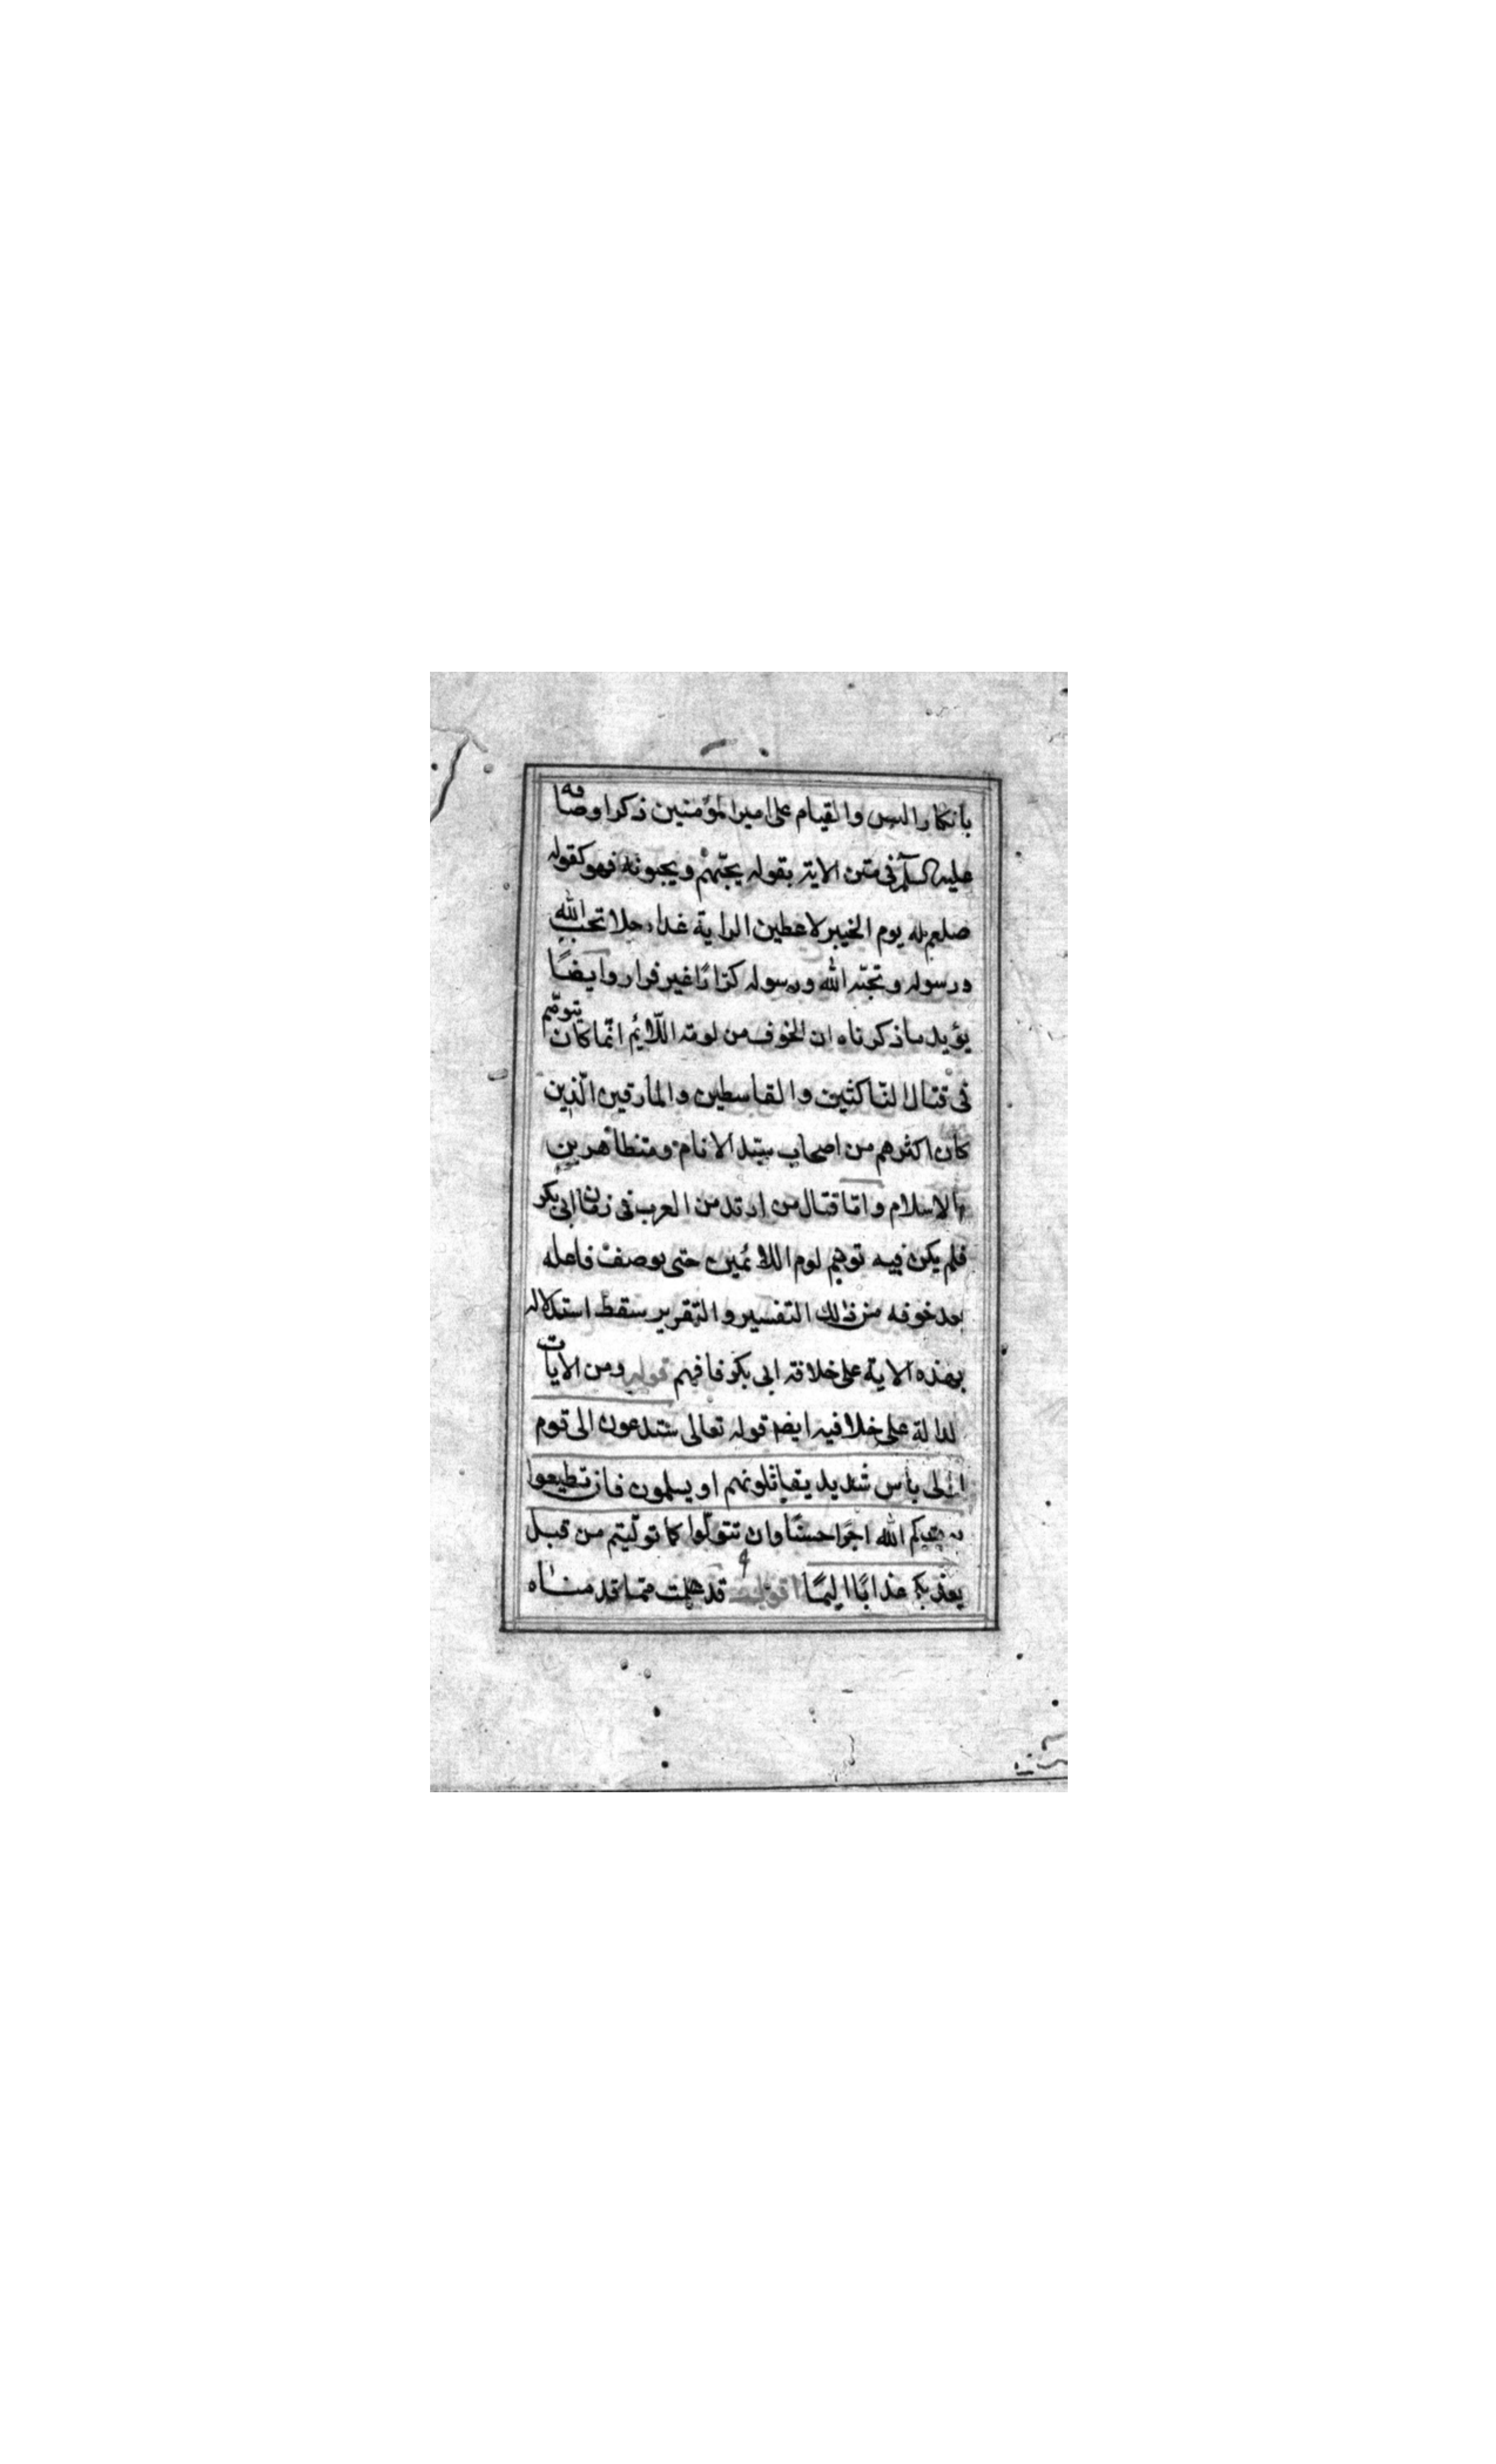 بانكار النص والقيام على امير المؤمنين ذكر اوصافه
عليه السلم فى متن الاية بقوله يحبّهم ويحبونه فهو كقوله
صلعم له يوم الخيبر لاعطين الراية غدا رجلا تحب الله
ورسوله وتحبّه الله ورسوله كرّارًا غير فرار وايضًا
يؤيد ما ذكرناه ان الخوف من لومة اللّائم انّما كان يتوهّم
فى قتال النّاكثين والقاسطين والمارقين الّذين
كان اكثرهم من اصحاب سيّد الانام ومتظاهرين
بالاسلام وامّا قتال من ارتد من العرب فى زمان ابى بكر
فلم يكن فيه توهم لوم اللائمين حتى يوصف فاعله
بعد خوفه من ذلك التفسير والتقرير سقط استدلاله
بهذه الاية على خلافة ابى بكر فافهم قوله ومن الايات
لدالة على خلافيه ايضا قوله تعالى ستدعون الى قوم
اولى بأس شديد يقاتلونهم او يسلمون فان تطيعوا
يؤتيكم الله اجرًا حسنًا وان تتولّوا كما تولّيتم من قبل
يعذبكم عذابًا اليمًا اقول قد علمت ممّا قدمناه